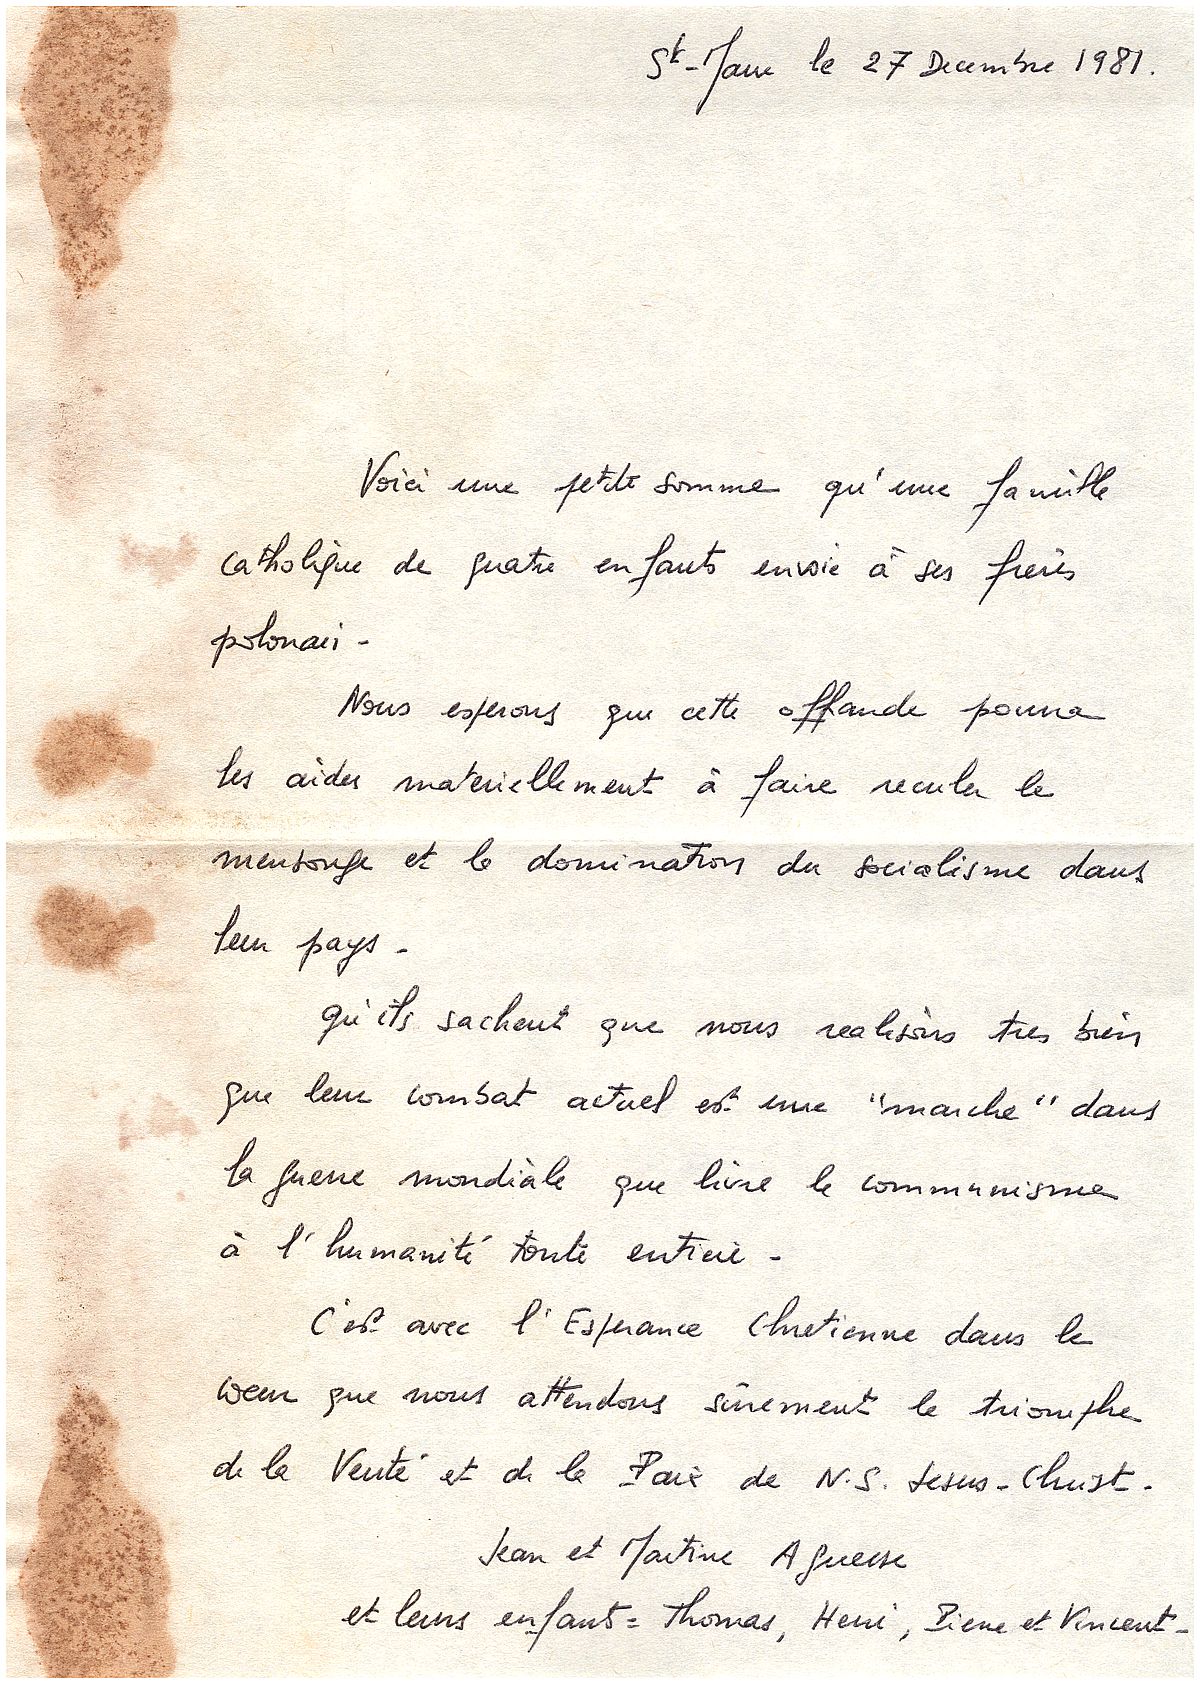 St-Maur le 27 Decembre 1981.
Voici une petite somme qu'une famille
catholique de quatre enfants envoie à ses frères
polonais -
Nous esperons que cette offrande pourra
les aider materiellement à faire reculer le
mensonge et la domination du socialisme dans
leur pays -
qu'ils sachent que nous realisons tres bien
que leur combat actuel est une "marche" dans
la guerre mondiale que livre le communisme
à l'humanité toute entière -
C'est avec l'Esperance Chretienne dans le
coeur que nous attendons sûrement le triomphe
de la Verité et de la Paix de N.S. Jesus-Christ -
Jean et Martine Aguesse
et leurs enfants = Thomas, Henri, Pierre et Vincent -